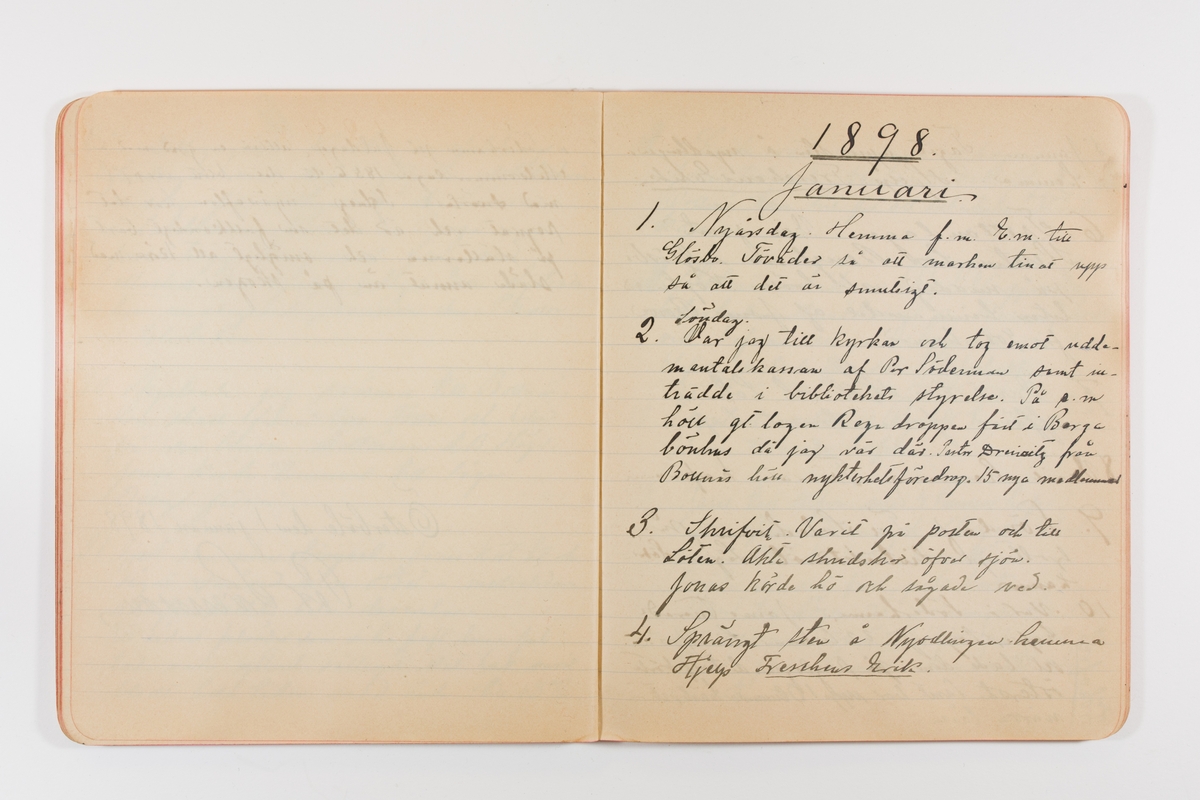 1898.
Januari.
1. Nyårsdag. Hemma f.m. E.m. till
Glösbo. Töväder så att marken tinat upp
så att det är smutsigt.
Söndag.
2. Var jag till kyrkan och tog emot udda-
mantalskassan af Per Söderman samt in-
trädde i bibliotekets styrelse. På e.m
höll gt logen Regndroppen fäst i Berga
bönhus då jag var där. Pastor från
Bollnäs höll nykterhetsföredrag. 15 nya medlemmar
3. Skrifvit. Varit på posten och till
Loten. Åkte skridskor öfver sjön.
Jonas körde hö och sågade ved.
4. Sprängt sten å Nyodlingen hemma
Hjelp Erik.